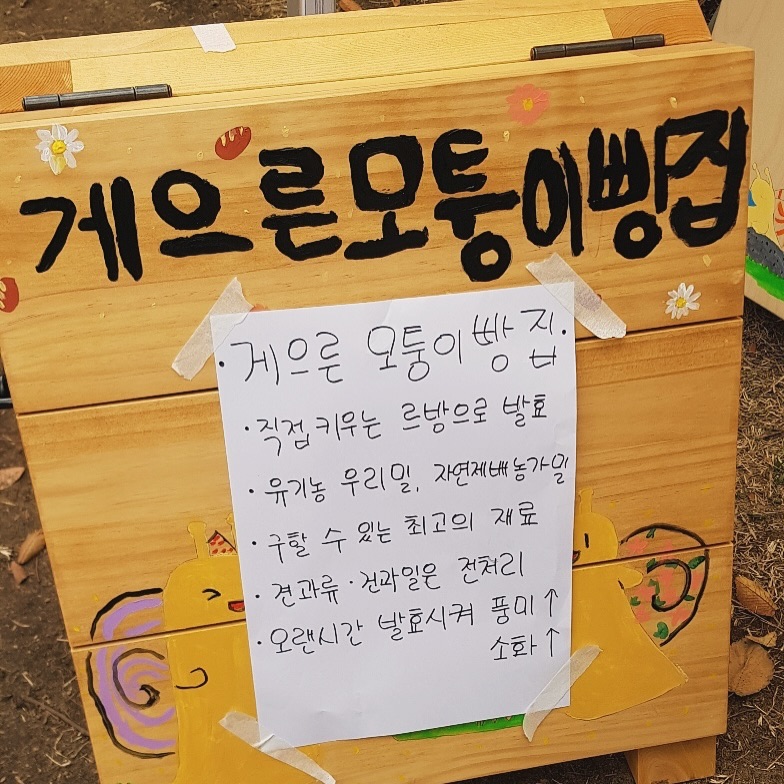 게으른모퉁이빵집
· 게으른 모퉁이빵집.
· 직접키우는 르방으로 발효
· 유기농 우리밀, 자연재배농가밀
· 구할 수 있는 최고의 재료
· 견과류·건과일은 전처리
· 오랜시간 발효시켜 풍미↑
소화↑